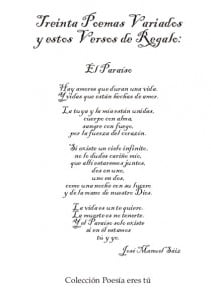 Treinta Poemas Variados
y estos Versos de Regalo:
El Paraíso
Hay amores que duran una vida.
Y vidas que están hechas de amor.
La tuya y la mía están unidas,
cuerpo con alma,
sangre con fuego,
por la fuerza del corazón.
Si existe un cielo infinito,
no lo dudes cariño mío,
que allí estaremos juntos,
dos en uno,
uno en dos,
como una noche con su lucero
y de la mano de nuestro Dios.
La vida es un te quiero.
La muerte es no tenerte.
Y el Paraíso solo existe
si en él estamos
tú y yo.
José Manuel Sáiz
Colección Poesía eres tú